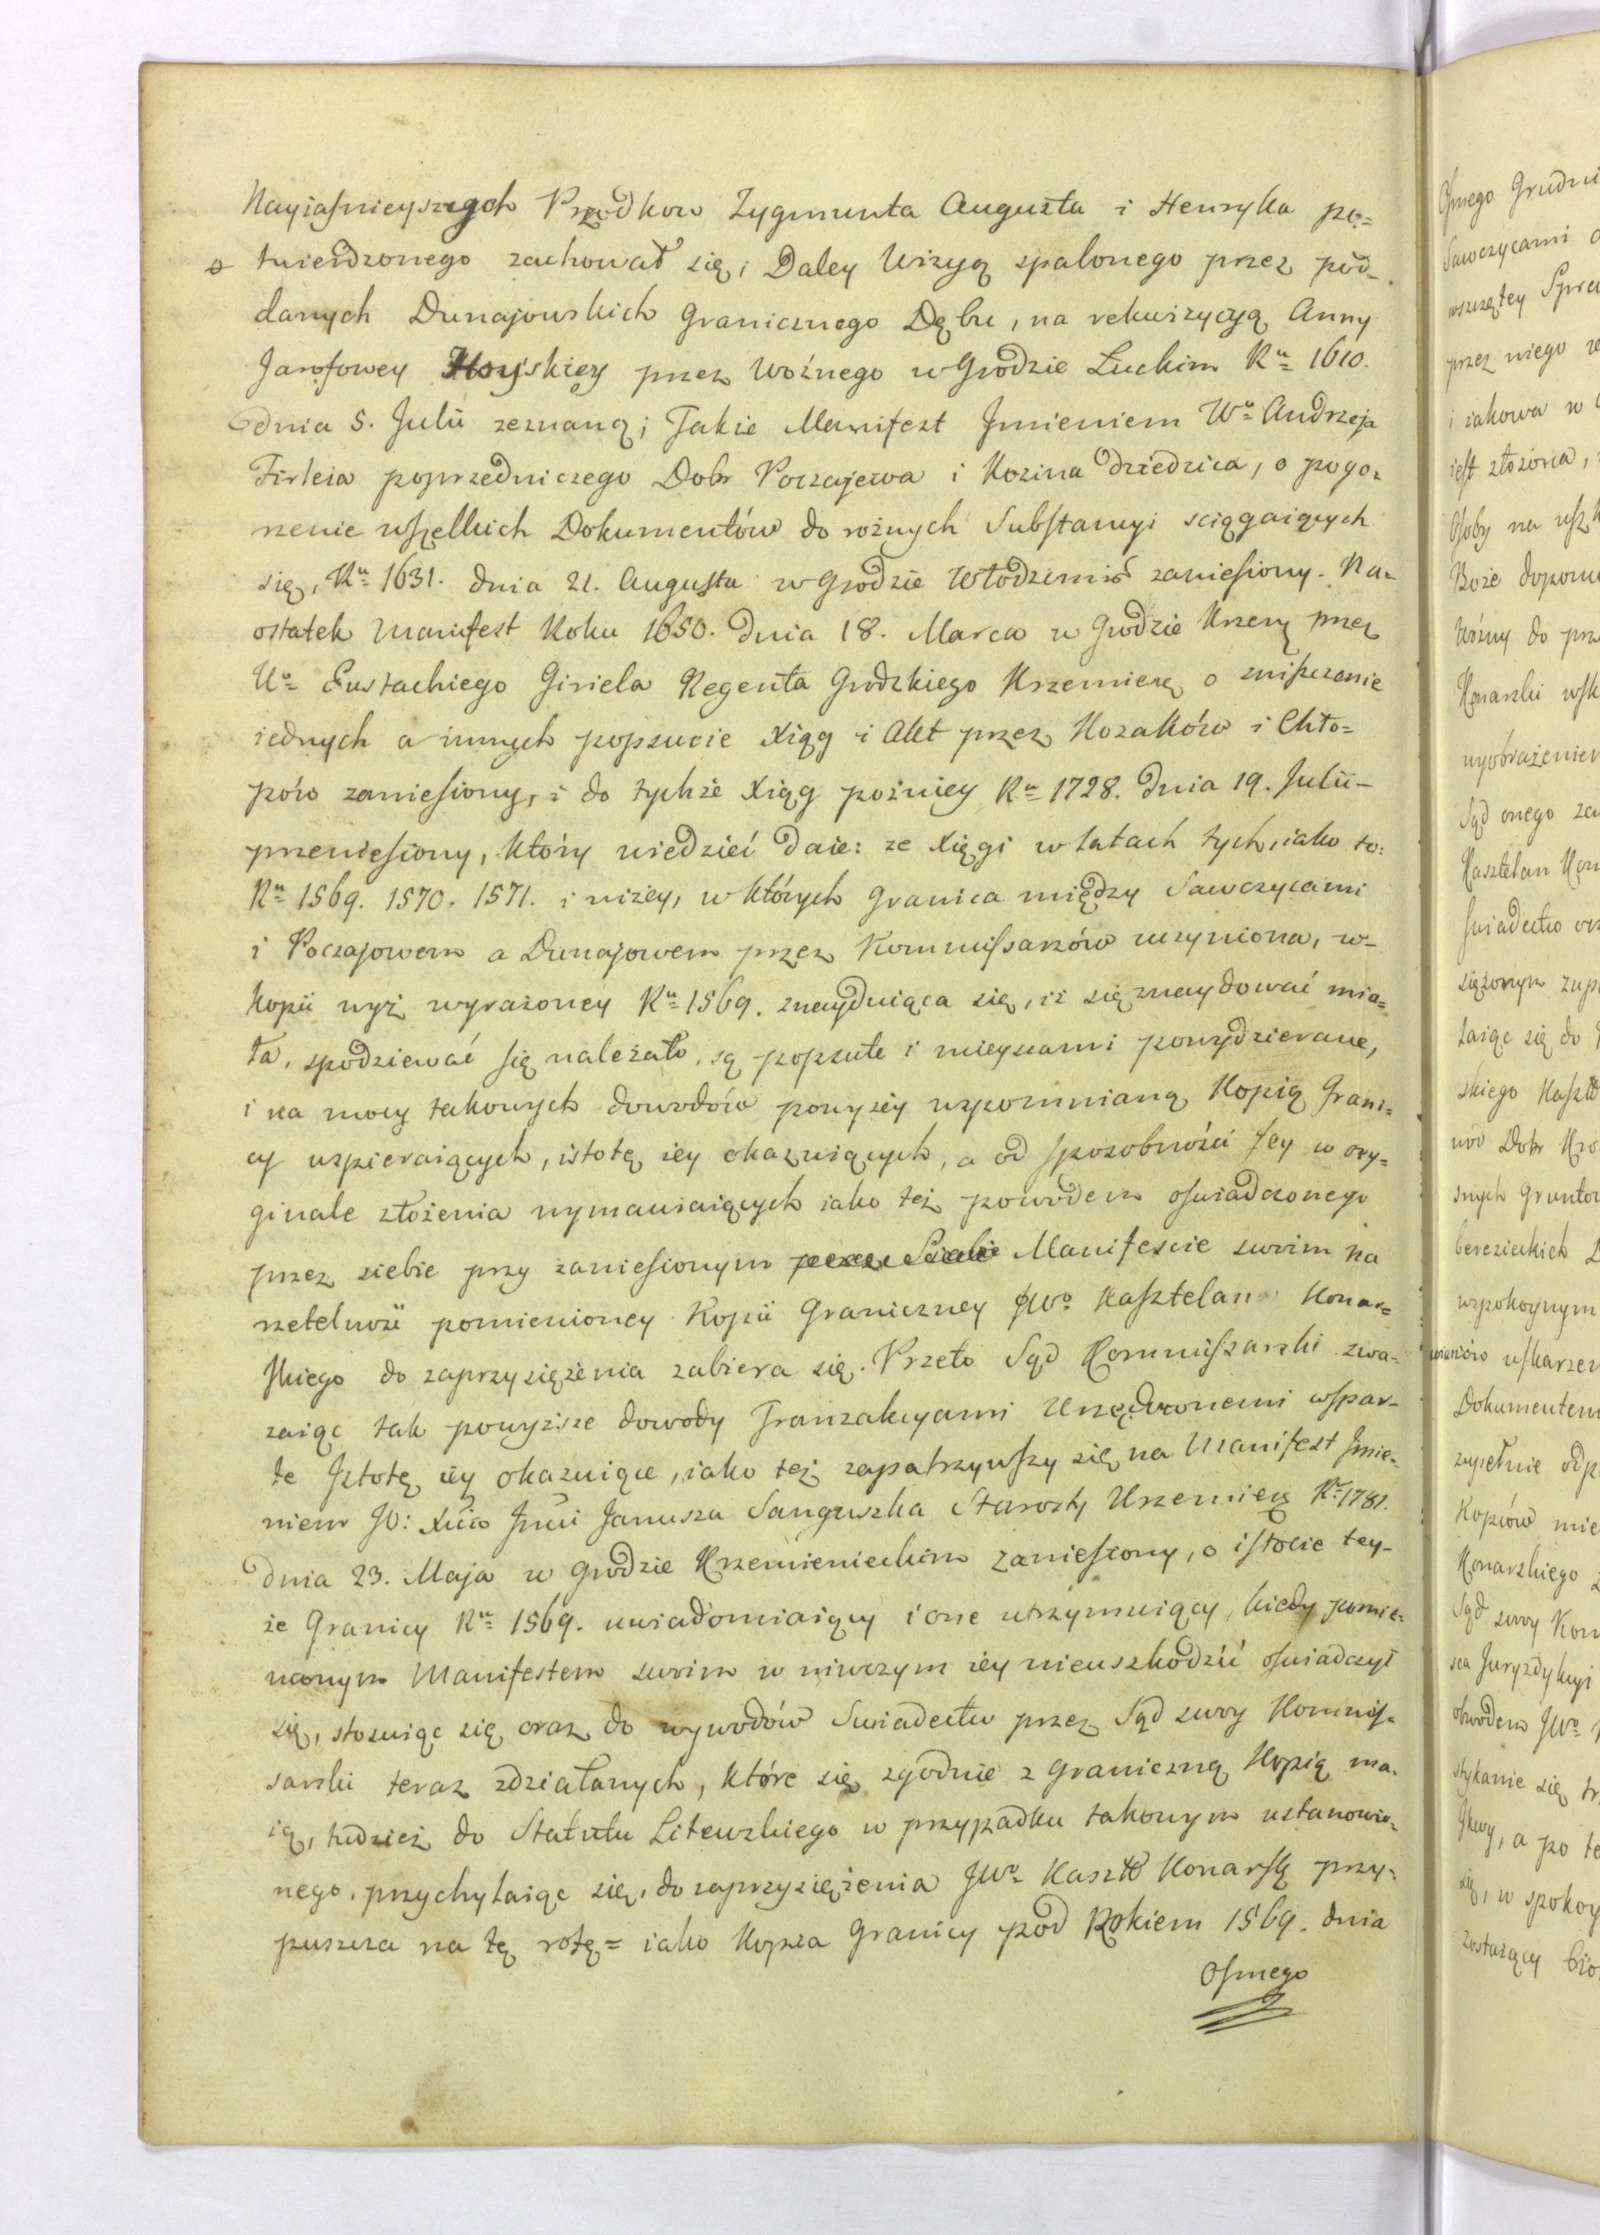 Nayiaśnieyszych Przodkow Zygmunta Augusta i Henryka po=
twierdzonego zachował się; Daley Wizyą spalonego przez pod=
danych Dunajowskich granicznego Dębu, na rekwizycyą Anny
Jarofowey Hoyskiey przez Woźnego w Grodzie Luckim Ru= 1610.
dnia 5. Julii zeznaną; Takie Manifest Jmieniem Wo= Andrzeja
Firleia poprzedniczego Dobr Poczajewa i Kozina dziedzica, o pogo=
rzenie wszelkich Dokumentów do rożnych Substancyi sciągaiących
się, Ru= 1631. dnia 21. Augusta w Grodzie Włodzimir zaniesiony. Na=
ostatek Manifest Roku 1650. dnia 18. Marca w Grodzie Krzem przez
Uo= Eustachiego Giziela Regenta Grodzkiego Krzemien o zniszczenie
iednych a innych popsucie Xiąg i Akt przez Kozaków i Chło=
pów zaniesiony, i do tychże Xiąg pożniey Ru= 1728. dnia 19. Julii -
przeniesiony, który wiedzieć daie: ze Xięgi w latach tych, iako to:
Ru= 1569. 1570. 1571. i niżey, w których granica między Sawczycami
i Poczajowem a Dunajowem przez Kommissarzów uczyniona, w=
Kopii wyż wyrażoney Ru= 1569. znayduiąca się, iż się znaydować mia=
ła, spodziewać się należało, są popsute i mieyscami powydzierane,
i na mocy takowych dowodów powyżey wspomnianą Kopią Grani=
cy wspieraiących, istotę iey okazuiących, a od sposobności Jey w ory=
ginale złożenia wymawiaiących iako też powodem oswiadczonego
przez siebie przy zaniesionym Manifescie swoim na
rzetelność pomienioney Kopii Graniczney JWo= Kasztelan Konar=
skiego do zaprzysiężenia zabiera się. Przeto Sąd Kommissarski zwa=
zaiąc tak powyższe dowody Tranzakcyami Urzędownemi wspar=
te Jstotę iey okazuiące, iako też zapatrzywszy się na Manifest Jmie=
niem JO: Xcia Jmci Janusza Sanguszka Starosty Krzemień Ru= 1781.
dnia 23. Maja w Grodzie Krzemienieckim zaniesiony, o istocie tey=
że Granicy Ru= 1569. uwiadomiaiący i one utrzymuiący, kiedy pomie=
nionym Manifestem swoim w niwczym iey nieuszkodzić oswiadczył
się, stosuiąc się oraz do wywodów Swiadectw przez Sąd swoy Kommis=
sarski teraz zdziałanych, które się zgodnie z Graniczną Kopią ma=
ią, tudzież do Statutu Litewskiego w przypadku takowym ustanowio=
nego, przychylaiąc się, do zaprzysiężenia JWo= Kasztl Konarsk przy=
puszcza na tę rotę= iako Kopia Granicy pod Rokiem 1569. dnia
Osmego
Osmego Grudni
Sawczycami
przez niego
i iakowa w
iest złożona,
Boże dopom
Woźny do prz
Konarski
wyobrażeniem
Sąd onego
Kasztelan Kon
siężonym zup
taiąc się do
skiego Kasztl
snych gruntow
wspokoynym
Dokumentem
zupełnie odp
Kopców mie
Konarskiego
Sąd swoy Kom
sca Juryzdykcyi
obwodem JWo=
stykanie się
a po te
się, w spokoy